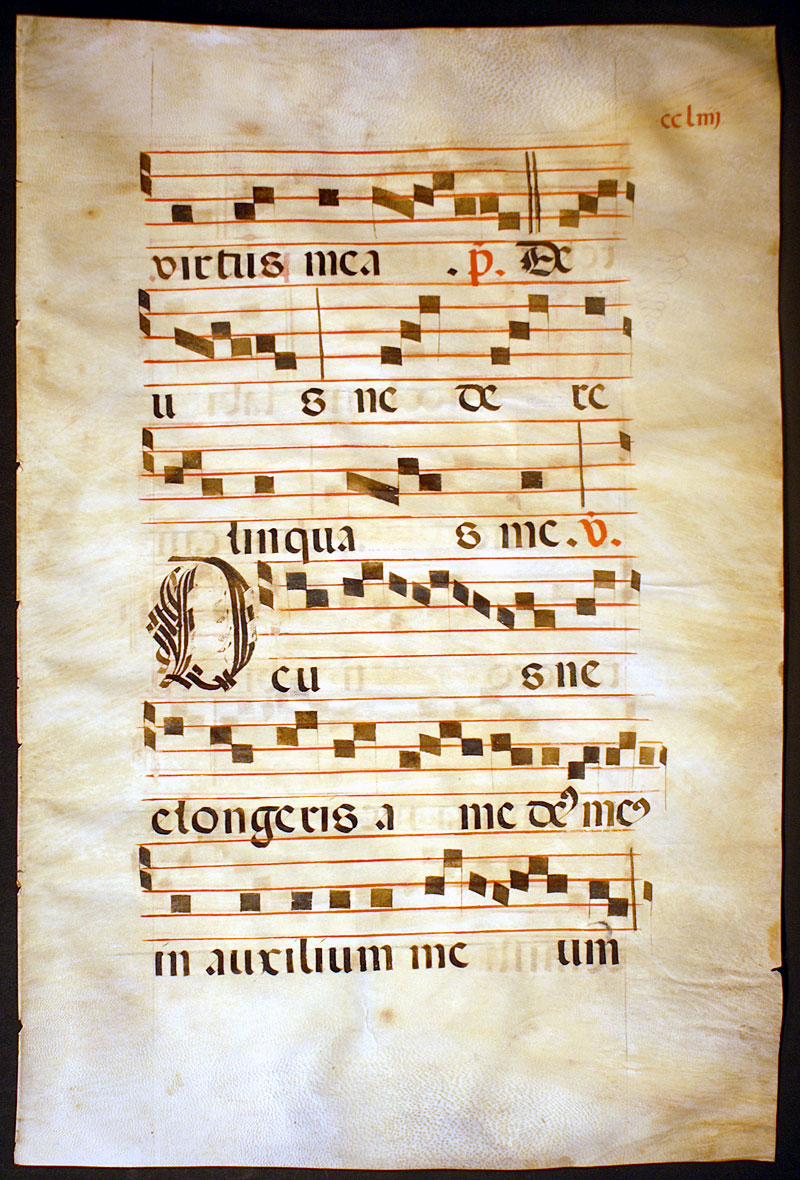 ccliiij
virtus mea . p̄. De
u s ne de re
linqua s me. v̄.
Deu s ne
elongeris a me de⁹ me⁹
in auxilium me um